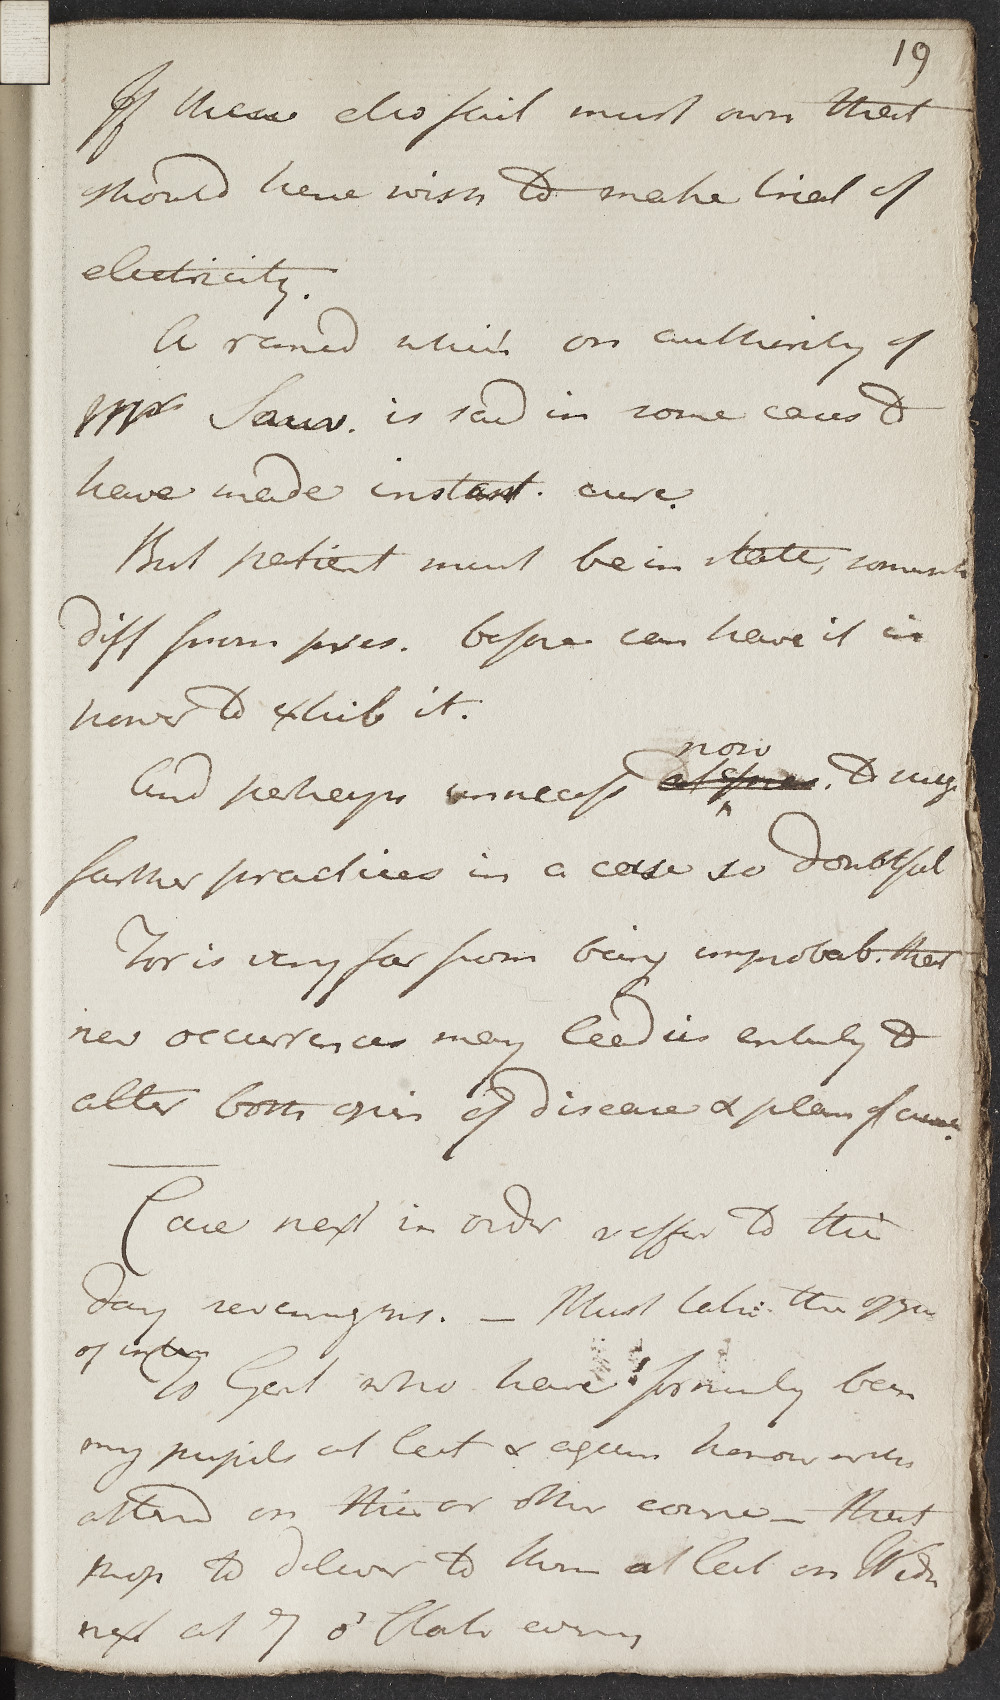 19
If these also fail must own that
should have wish to make trial of
electricity.
A remed which on authority of
Sauv. is said in some cases to
have made instant. cure.
But patient must be in state, somewh
diff from pres. before can have it in
power to exhib it.
now
And perhaps unnecess at pres. to sugg
farther practices in a case so doubtful
For is very far from being improbab. that
new occurrences may lead us entirely to
alter both opin of disease & plan of cure.
Case next in order reffer to this
day sevennight. — Must take this oppu
of intim
To Gent who have formerly been
my pupils at lect & again honour with
attend on this or other course — that
prop to deliver to them a lect on Wedn
next at 7 o' Clock evening